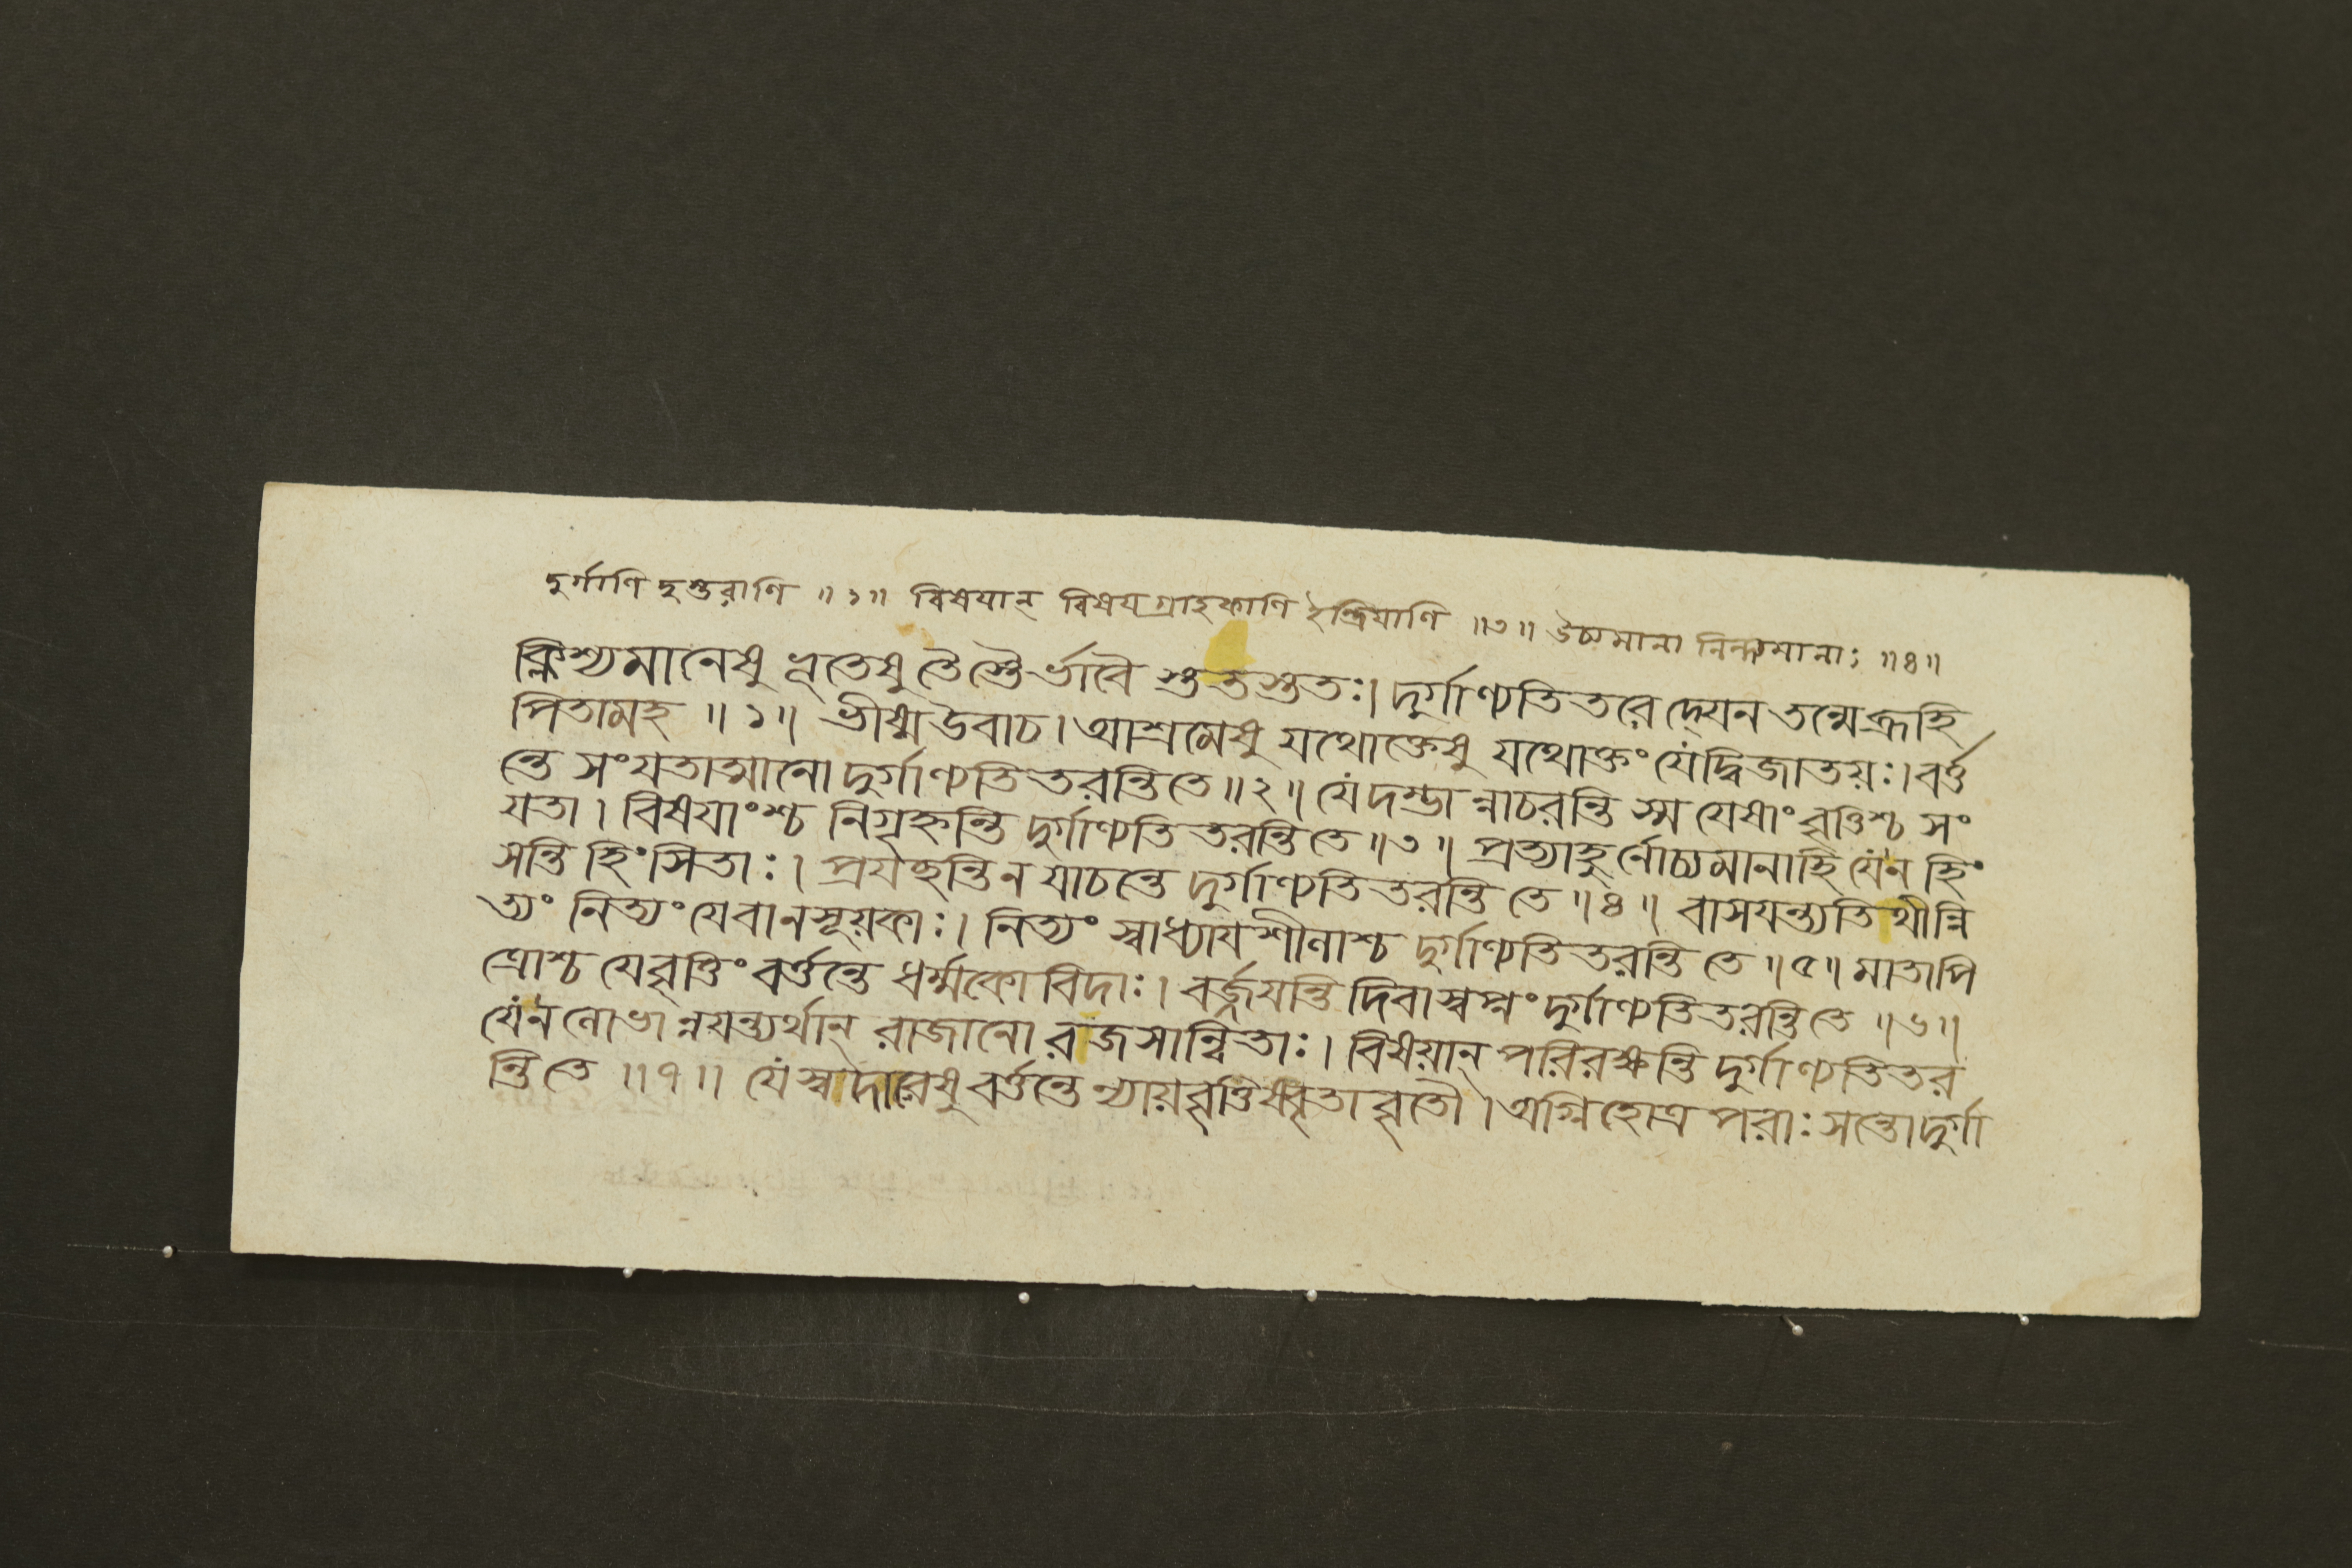 দুর্গাণি দুস্তরাণি ॥ ১॥ বিষযান্ বিষযগ্রাহকাণি ইন্দ্রিযাণি ॥৩॥ উচ্যমানা নিন্দ্যমানাঃ ॥৪॥
ক্লিশ্যমানেষু ভূতেষু তৈস্তৈর্ভাবৈ স্তুতস্তুতঃ। দুর্গাণ্যতিতরেদ্যেন তন্মেব্রূহি
পিতামহ ॥ ১॥ ভীষ্মউবাচ। আশ্রমেষু যথোক্তেষু যথোক্তং যেদ্বিজাতয়ঃ। বর্ত্ত
ন্তে সংযতাত্মানো দুর্গাণ্যতিতরন্তিতে ॥ ২॥ যেদম্ভান্নাচরন্তি স্ম যেষাং বৃত্তিশ্চ সং
যতা। বিষযাংশ্চ নিগৃহ্নন্তি দুর্গাণ্যতি তরন্তি তে ॥ ৩॥ প্রত্যাহুর্নোচ্যমানাহি যেন হিং
সন্তি হিংসিতাঃ। প্রযচ্ছন্তি ন যাচন্তে দুর্গাণ্যতি তরন্তি তে ॥ ৪॥ বাসযন্ত্যতিথীন্নি
ত্যং নিত্যং যেবানসূয়কাঃ। নিত্যং স্বাধ্যাযশীলাশ্চ দুর্গাণ্যতিতরন্তি তে ॥ ৫॥ মাতাপি
ত্রোশ্চ যেবৃত্তিং বর্ত্তন্তে ধর্ম্মকোবিদাঃ। বর্জ্জযন্তি দিবাস্বপ্নং দুর্গাণ্যতিতরন্তিতে ॥৬॥
যেন লোভান্নযন্ত্যর্থান্ রাজানো রজসান্বিতাঃ। বিষয়ান্ পরিরক্ষন্তি দুর্গাণ্যতিতর
ন্তিতে ॥৭॥ যেস্বদারেষু বর্ত্তন্তে ন্যায়বৃত্তি ঋতাবৃতৌ। অগ্নিহোত্র পরাঃ সন্তো দুর্গা